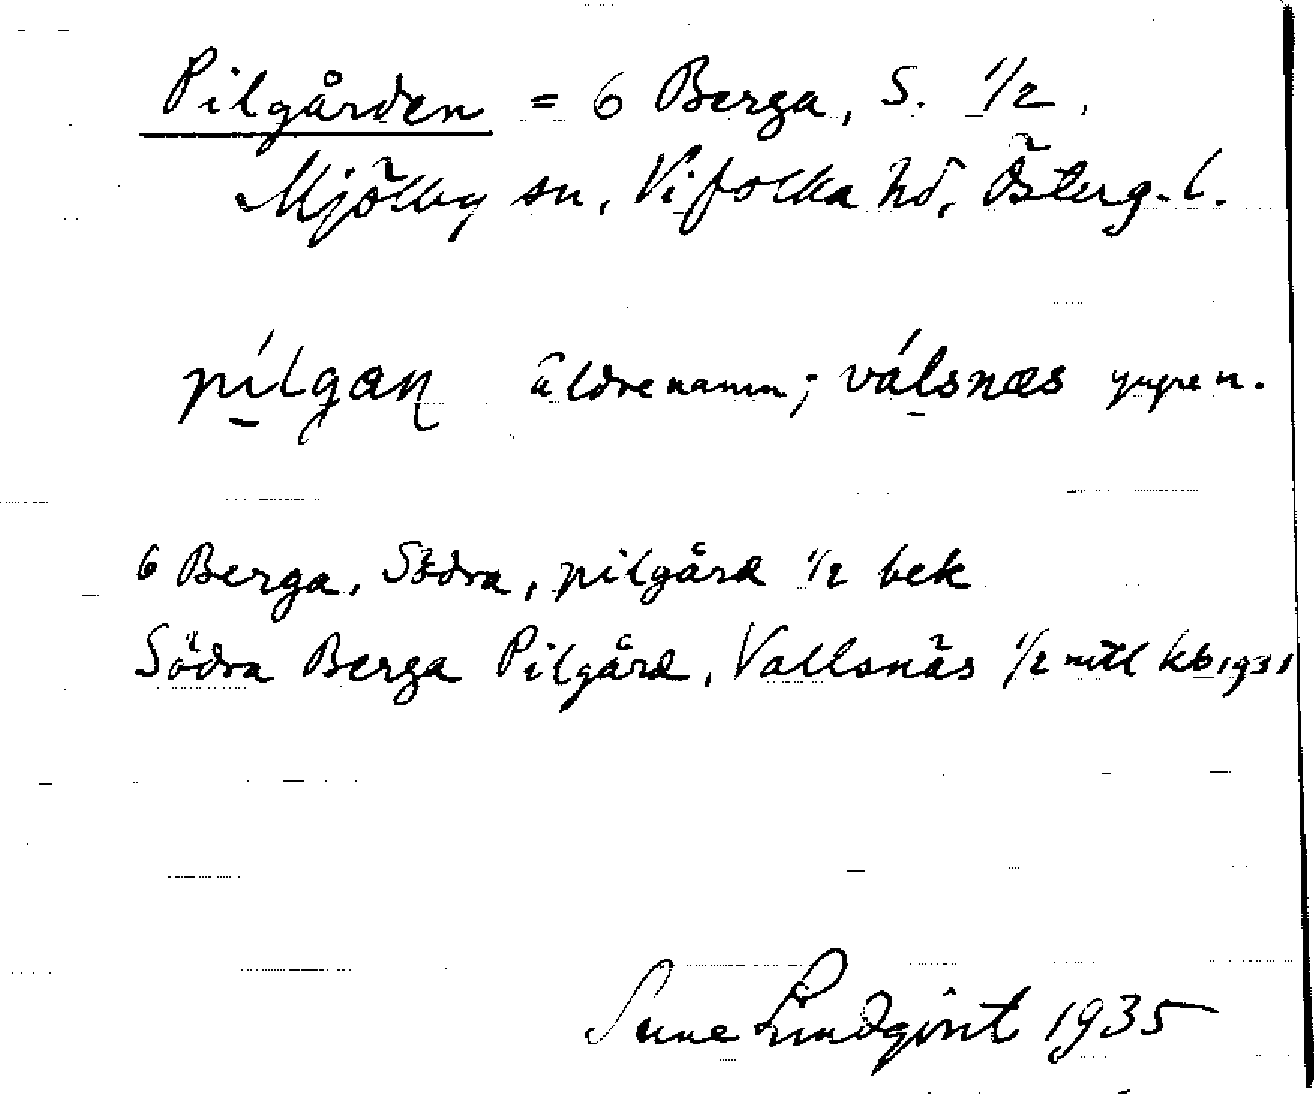 Pilgården = 6 Berga, S. 1/2.
Mjölby sn, Vifolka hd, Österg. l.
pílgaɳ äldre namn; válsnæs yngre n.
6 Berga, Södra, pilgård 1/2 bek
Södra Berga Pilgård, Vallsnäs 1/2 mtl kb 1931
Sune Lindqvist 1935